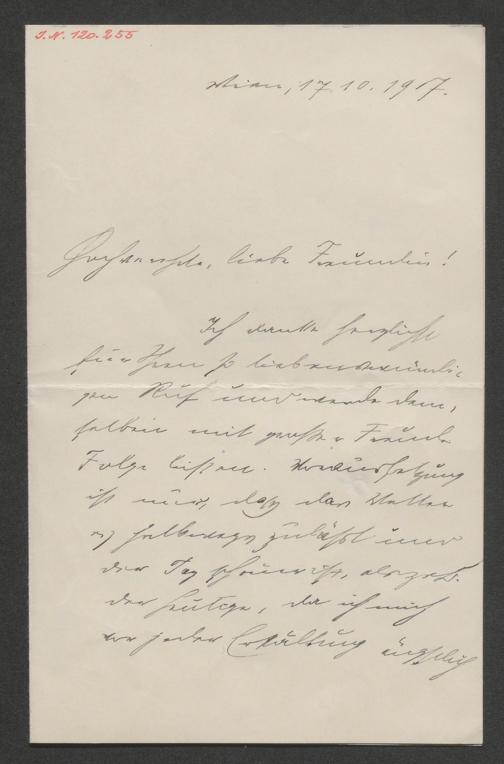 I.N. 120.255
Wien, 17.10.1917.
Hochverehrte, liebe Freundin!
Ich danke herzlichst
für Ihren so liebenswürdi-
gen Ruf und werde dem-
selben mit großer Freude
Folge leisten. Voraussetzung
ist nur, daß das Wetter
es halbwegs zuläßt und
der Tag schöner ist, als
der heutige, da ich mich
vor jeder Erkältung ängstlich